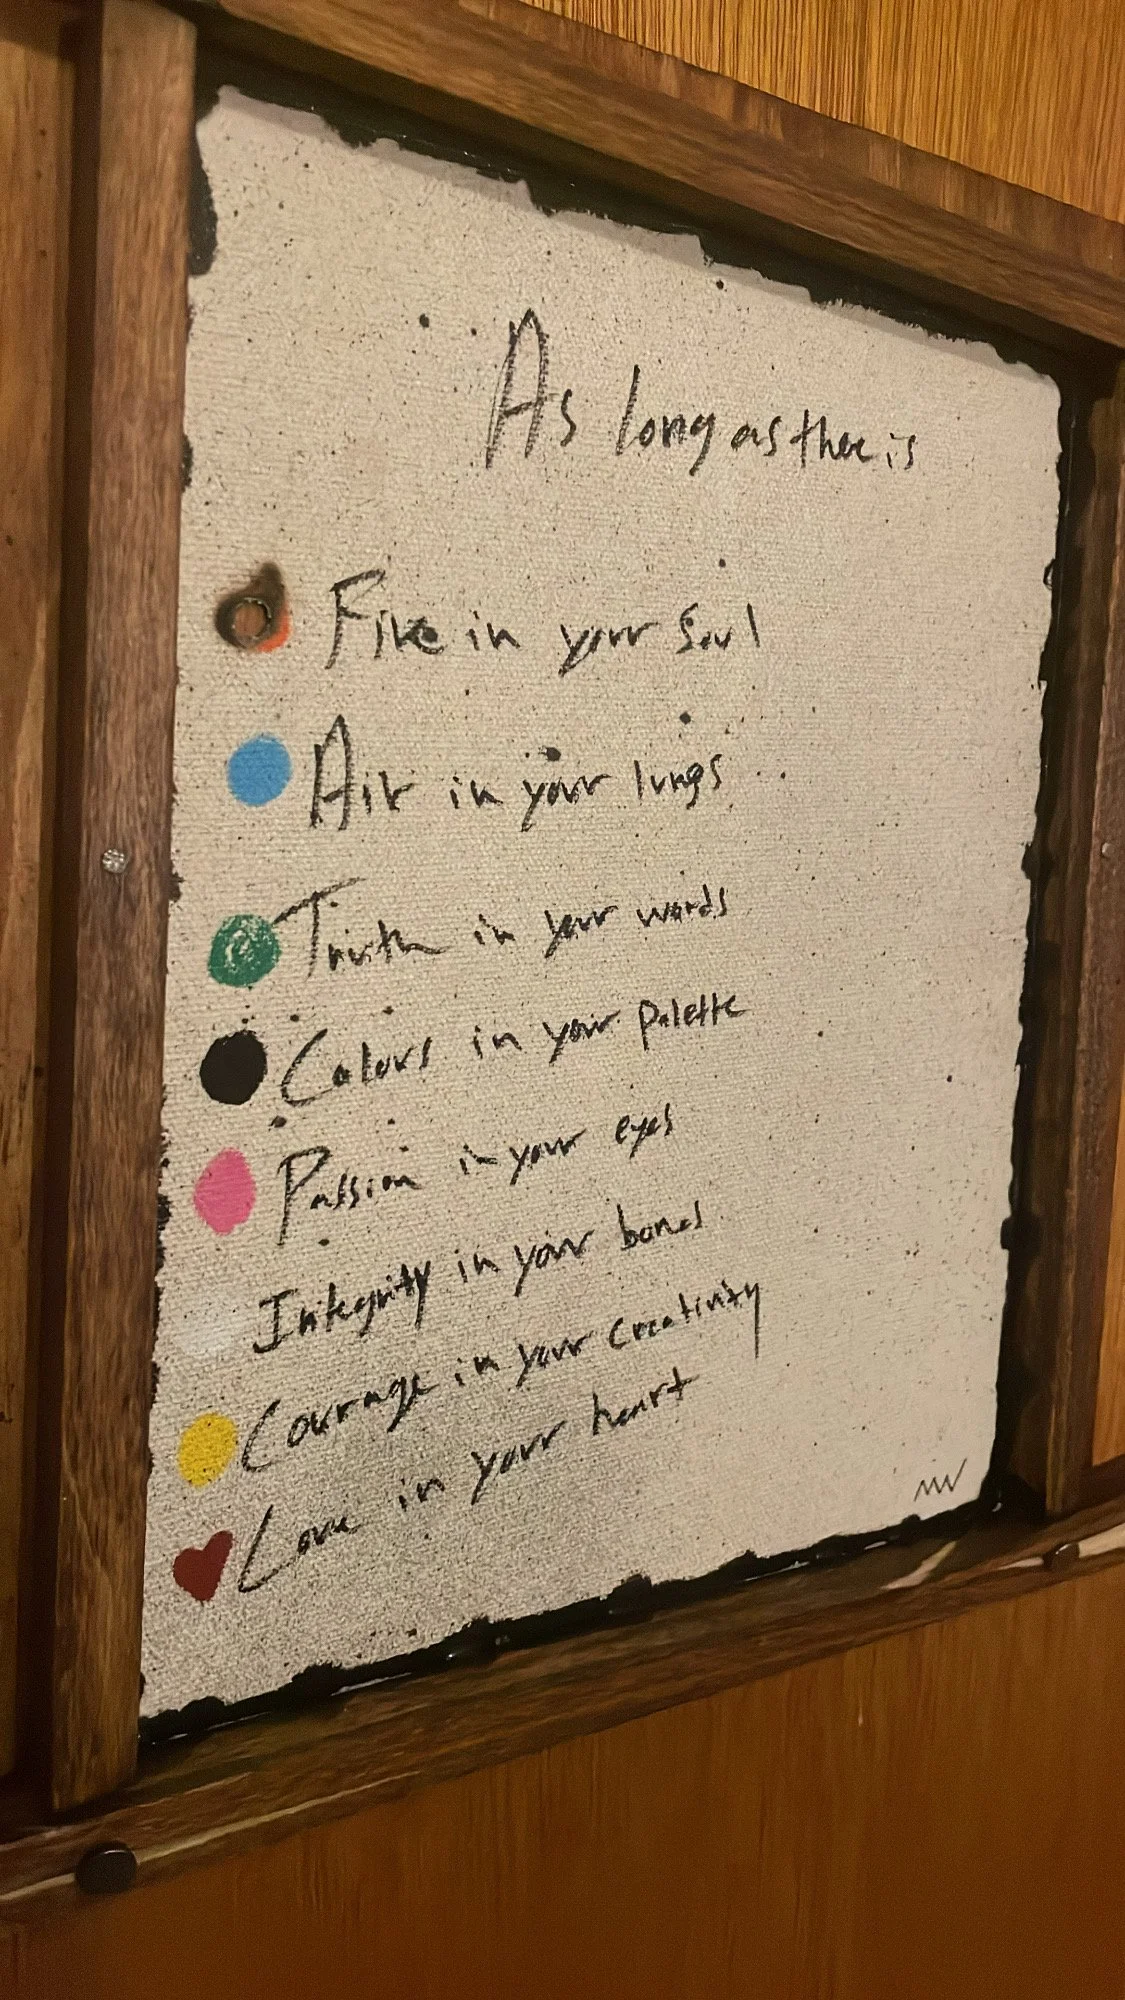 As long as there is
Fire in your soul
Air in your lungs
Truth in your words
Colours in your palette
Passion in your eyes
Integrity in your bones
Courage in your creativity
Love in your heart